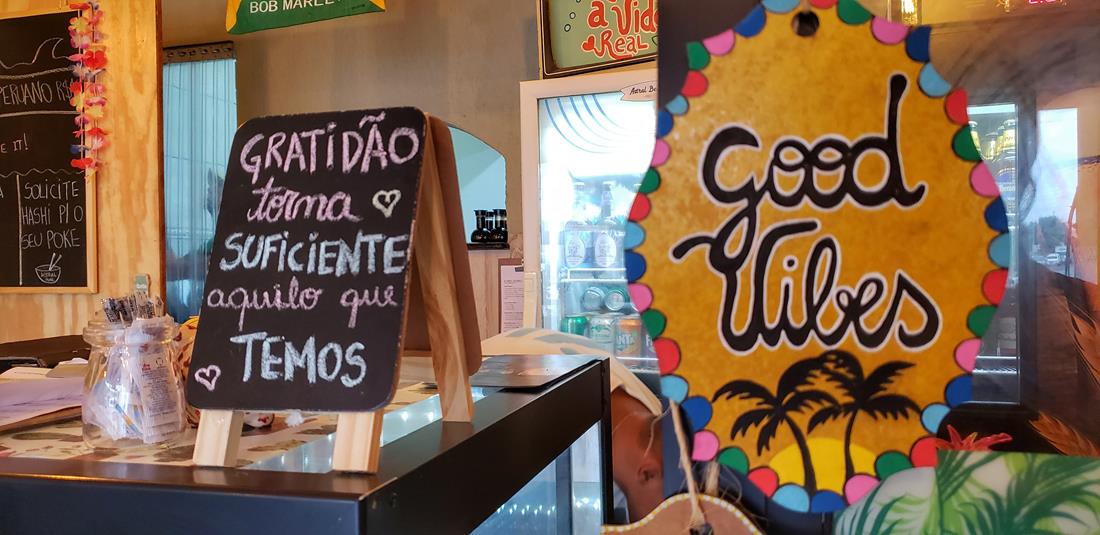 BOB MARLEY
a Vida
Real
PERUANO R$
E IT!
SOLICITE
HASHI P/ O
SEU POKE
GRATIDÃO
torna
SUFICIENTE
aquilo que
TEMOS
Good
Vibes